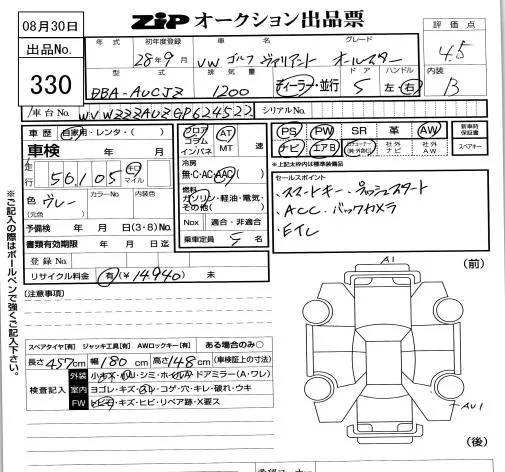 08月30日
ZIP オークション出品票
評価点
4.5
出品No.
330
年式 初年度登録 車名 グレード
28年9月 VW ゴルフ ヴァリアント オールスター
型式 排気量 ドア ハンドル
DBA-AUCJZ 1200 ディーラー・並行 5 左・右
内装
B
車台No. WVWZZZAUZGP624522 シリアルNo.
車歴 自家用・レンタ・( )
フロア コラム インパネ AT MT 速
PS PW SR 革 AW
新車時保証書
車検 年 月
ナビ エアB 社外ナビ 社外AW スペアキー
走行 56,105 キロ マイル
冷房
無・C・AC・AAC( )
※上記太枠内は標準装備品
色 グレー カラーNo 内装色
(元色)
燃料
ガソリン・軽油・電気・その他( )
セールスポイント
・スマートキー・プッシュスタート
・ACC・バックカメラ
・ETC
予備検 年 月 日(3・8)No.
Nox 適合・非適合
書類有効期限 年 月 日迄
乗車定員 5 名
登録No.
リサイクル料金 有(¥14,940) 未
※ご記入の際はボールペンで強くご記入下さい。
[注意事項]
A1 (前)
スペアタイヤ[有] ジャッキ工具[有] AWロックキー[有] ある場合のみ○
長さ 457cm 幅 180cm 高さ 148cm (車検証上の寸法)
検査記入
外装 小キズ・小凹・シミ・ホイルA・ドアミラー(A・ワレ)
室内 ヨゴレ・キズ・スレ・コゲ・穴・キレ・破れ・ウキ
FW トビ石・キズ・ヒビ・リペア跡・X要ス
AU1
(後)